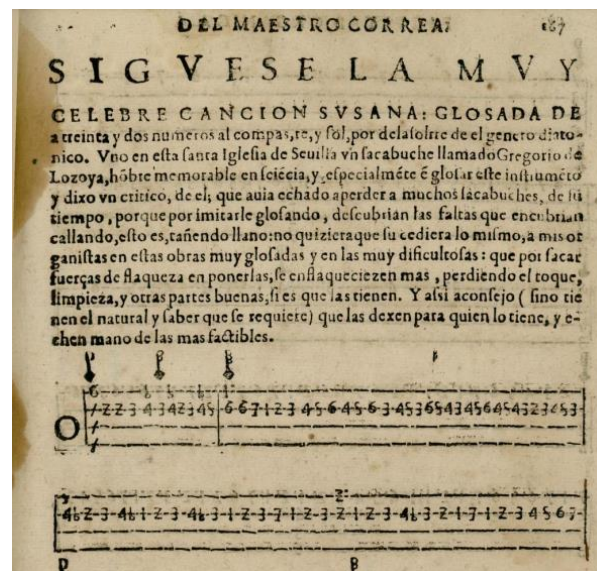 DEL MAESTRO CORREA. 167
SIGVESE LA MVY
CELEBRE CANCION SVSANA: GLOSADA DE
a treinta y dos numeros al compas, re, y sol, por delasolrre de el genero diato-
nico. Vno en esta santa Iglesia de Seuilla vn sacabuche llamado Gregorio de
Lozoya, hõbre memorable en sciẽcia, y especialmẽte ẽ glosar este instrumẽto
y dixo vn critico, de el; que auia echado a perder a muchos sacabuches, de su
tiempo, porque por imitarle glosando, descubrian las faltas que encubrian
callando, esto es, tañendo llano: no quiziera que su cediera lo mismo, a mis or
ganistas en estas obras muy glosadas y en las muy dificultosas: que por sacar
fuerças de flaqueza en ponerlas, se enflaqueciezen mas, perdiendo el toque,
limpieza, y otras partes buenas, si es que las tienen. Y assi aconsejo ( sino tie
nen el natural y saber que se requiere) que las dexen para quien lo tiene, y e-
chen mano de las mas factibles.